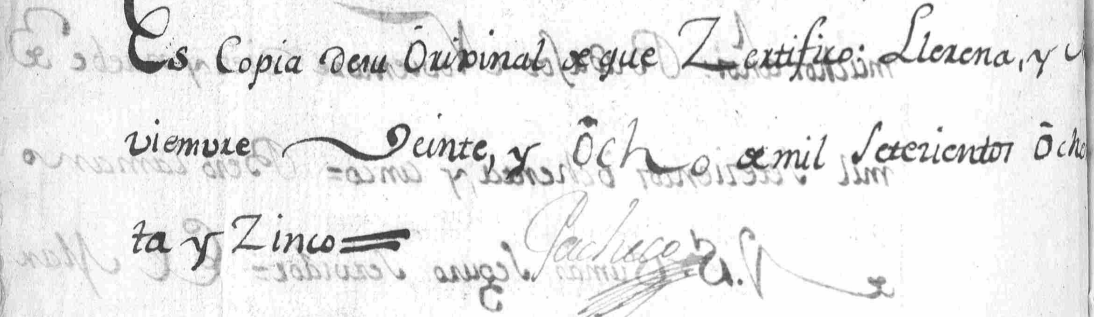 Es Copia desu Original de que Zertifico: Llerena, y
viemvre Veinte, y Ôcho de mil Setezientos Ôche
ta y Zinco=
Pacheco